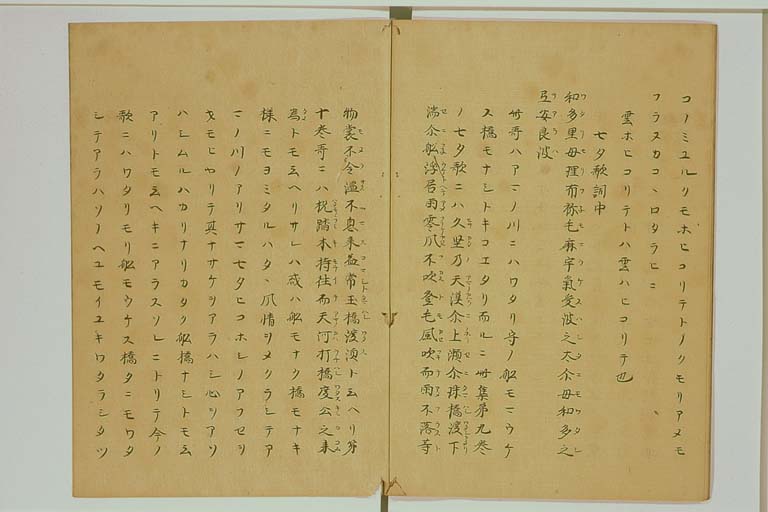 コノミユルリモホヒコリテトノクモリアメモ
フラヌカコヽロタラヒニ
雲ホヒコリテトハ雲ハヒコリテ也
七夕歌詞中
和多里母理布祢毛麻宇氣受波之太尓母和多之
弖安良波
此哥ハアマノ川ニハワタリ守ノ船モマウケ
ス橋モナシトキコエタリ而ルニ此集第九巻
ノ七夕歌ニハ久堅乃天漢尓上瀬尓珠橋渡下
湍尓船浮居雨零爪不吹登毛風吹而雨不落等
物裳不令濕不息来益常玉橋渡須ト云ヘリ第
十巻哥ニハ机踏木持往而天河打橋度公之来
為トモ云ヘリサレハ或ハ船モナク橋モナキ
様ニモヨミタルハタヽ爪情ヲメクラシテア
マノ川ノアリサマ七夕ヒコホシノアフセヲ
オモヒヤリテ真ナサケヲアラハシ心ヲアソ
ハシムルハカリナリカタク船橋ナシトモ云
アリトモ云ヘキニアラスソレニトリテ今ノ
歌ニハワタリモリ船モウケス橋タニモワタ
シテアラハソノヘユモイユキワタラシタツ